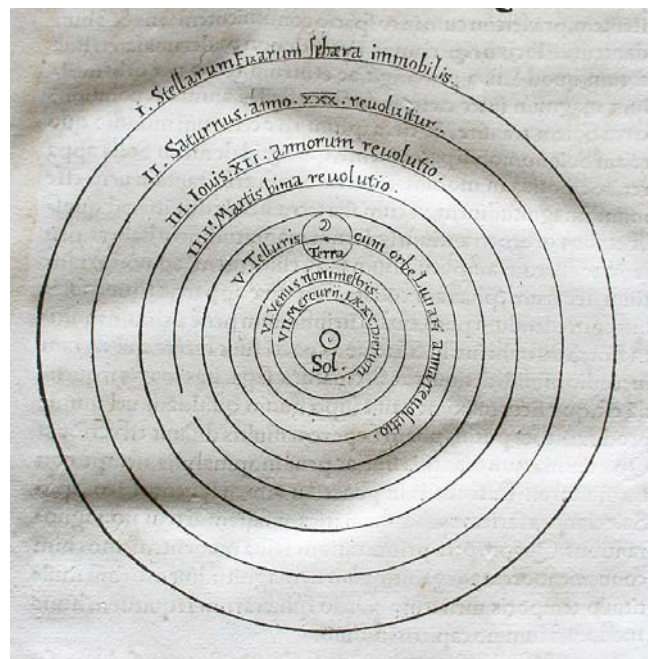 I. Stellarum Fixarum sphæra immobilis.
II. Saturnus. anno. XXX. reuoluitur.
III. Iouis. XII. annorum reuolutio.
IIII. Martis bima reuolutio.
V. Telluris cum orbe Lunari annua reuolutio.
Terra
VI Venus nonimestris
VII Mercurii. LXXX. dierum
Sol.